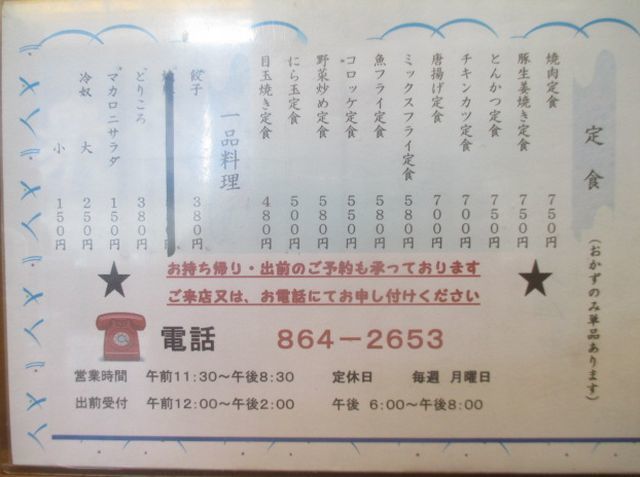 定食
（おかずのみ単品あります）
焼肉定食 750円
豚生姜焼き定食 750円
とんかつ定食 750円
チキンカツ定食 700円
唐揚げ定食 700円
ミックスフライ定食 580円
魚フライ定食 580円
コロッケ定食 550円
野菜炒め定食 580円
にら玉定食 500円
目玉焼き定食 480円
一品料理
餃子 380円
とりころ 380円
マカロニサラダ 150円
冷奴 大 250円
小 150円
お持ち帰り・出前のご予約も承っております
ご来店又は、お電話にてお申し付けください
電話 864－2653
営業時間 午前11:30～午後8:30 定休日 毎週 月曜日
出前受付 午前12:00～午後2:00 午後 6:00～午後8:00